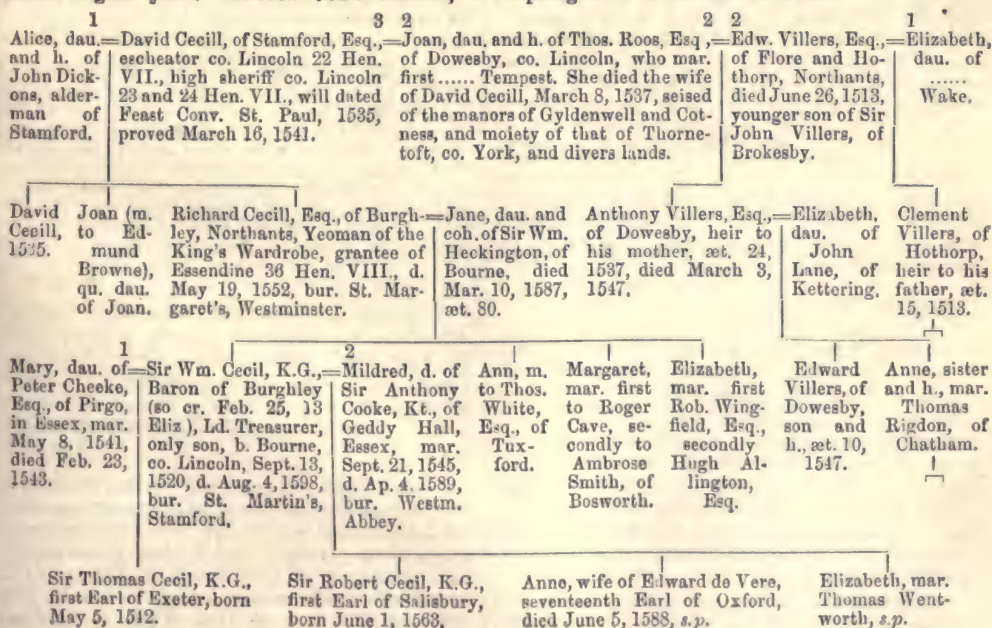 1
Alice, dau.
and h. of
John Dick-
ons, alder-
man of
Stamford.
3
=David Cecill, of Stamford, Esq.,=
escheator co. Lincoln 22 Hen.
VII., high sheriff co. Lincoln
23 and 24 Hen. VII., will dated
Feast Conv. St. Paul, 1535,
proved March 16, 1541.
2 2
Joan, dau. and h. of Thos. Roos, Esq,=
of Dowesby, co. Lincoln, who mar.
first ...... Tempest. She died the wife
of David Cecill, March 8, 1537, seised
of the manors of Gyldenwell and Cot-
ness, and moiety of that of Thorne-
toft, co. York, and divers lands.
2
Edw. Villers, Esq.,=
of Flore and Ho-
thorp, Northants,
died June 26, 1513,
younger son of Sir
John Villers, of
Brokesby.
1
Elizabeth,
dau. of
......
Wake.
David
Cecill,
1535.
Joan (m.
to Ed-
mund
Browne),
qu. dau.
of Joan.
Richard Cecill, Esq., of Burgh-=
ley, Northants, Yeoman of the
King's Wardrobe, grantee of
Essendine 36 Hen. VIII., d.
May 19, 1552, bur. St. Mar-
garet's, Westminster.
Jane, dau. and
coh. of Sir Wm.
Heckington, of
Bourne, died
Mar. 10, 1587,
æt. 80.
Anthony Villers, Esq.,=
of Dowesby, heir to
his mother, æt. 24,
1537, died March 3,
1547.
Elizabeth,
dau. of
John
Lane, of
Kettering.
Clement
Villers, of
Hothorp,
heir to his
father, æt.
15, 1513.
1
Mary, dau. of=
Peter Cheeke,
Esq., of Pirgo,
in Essex, mar.
May 8, 1541,
died Feb. 23,
1543.
Sir Wm. Cecil, K.G.,=
Baron of Burghley
(so cr. Feb. 25, 13
Eliz), Ld. Treasurer,
only son, b. Bourne,
co. Lincoln, Sept. 13,
1520, d. Aug. 4, 1598,
bur. St. Martin's,
Stamford.
2
Mildred, d. of
Sir Anthony
Cooke, Kt., of
Geddy Hall,
Essex, mar.
Sept. 21, 1545,
d. Ap. 4. 1589,
bur. Westm.
Abbey.
Ann, m.
to Thos.
White,
Esq., of
Tux-
ford.
Margaret,
mar. first
to Roger
Cave, se-
condly to
Ambrose
Smith, of
Bosworth.
Elizabeth,
mar. first
Rob. Wing-
field, Esq.,
secondly
Hugh Al-
lington,
Esq.
Edward
Villers, of
Dowesby,
son and
h., æt. 10,
1547.
Anne, sister
and h., mar.
Thomas
Rigdon, of
Chatham.
Sir Thomas Cecil, K.G.,
first Earl of Exeter, born
May 5, 1512.
Sir Robert Cecil, K.G.,
first Earl of Salisbury,
born June 1, 1563.
Anne, wife of Edward de Vere,
seventeenth Earl of Oxford,
died June 5, 1588, s.p.
Elizabeth, mar.
Thomas Went-
worth, s.p.